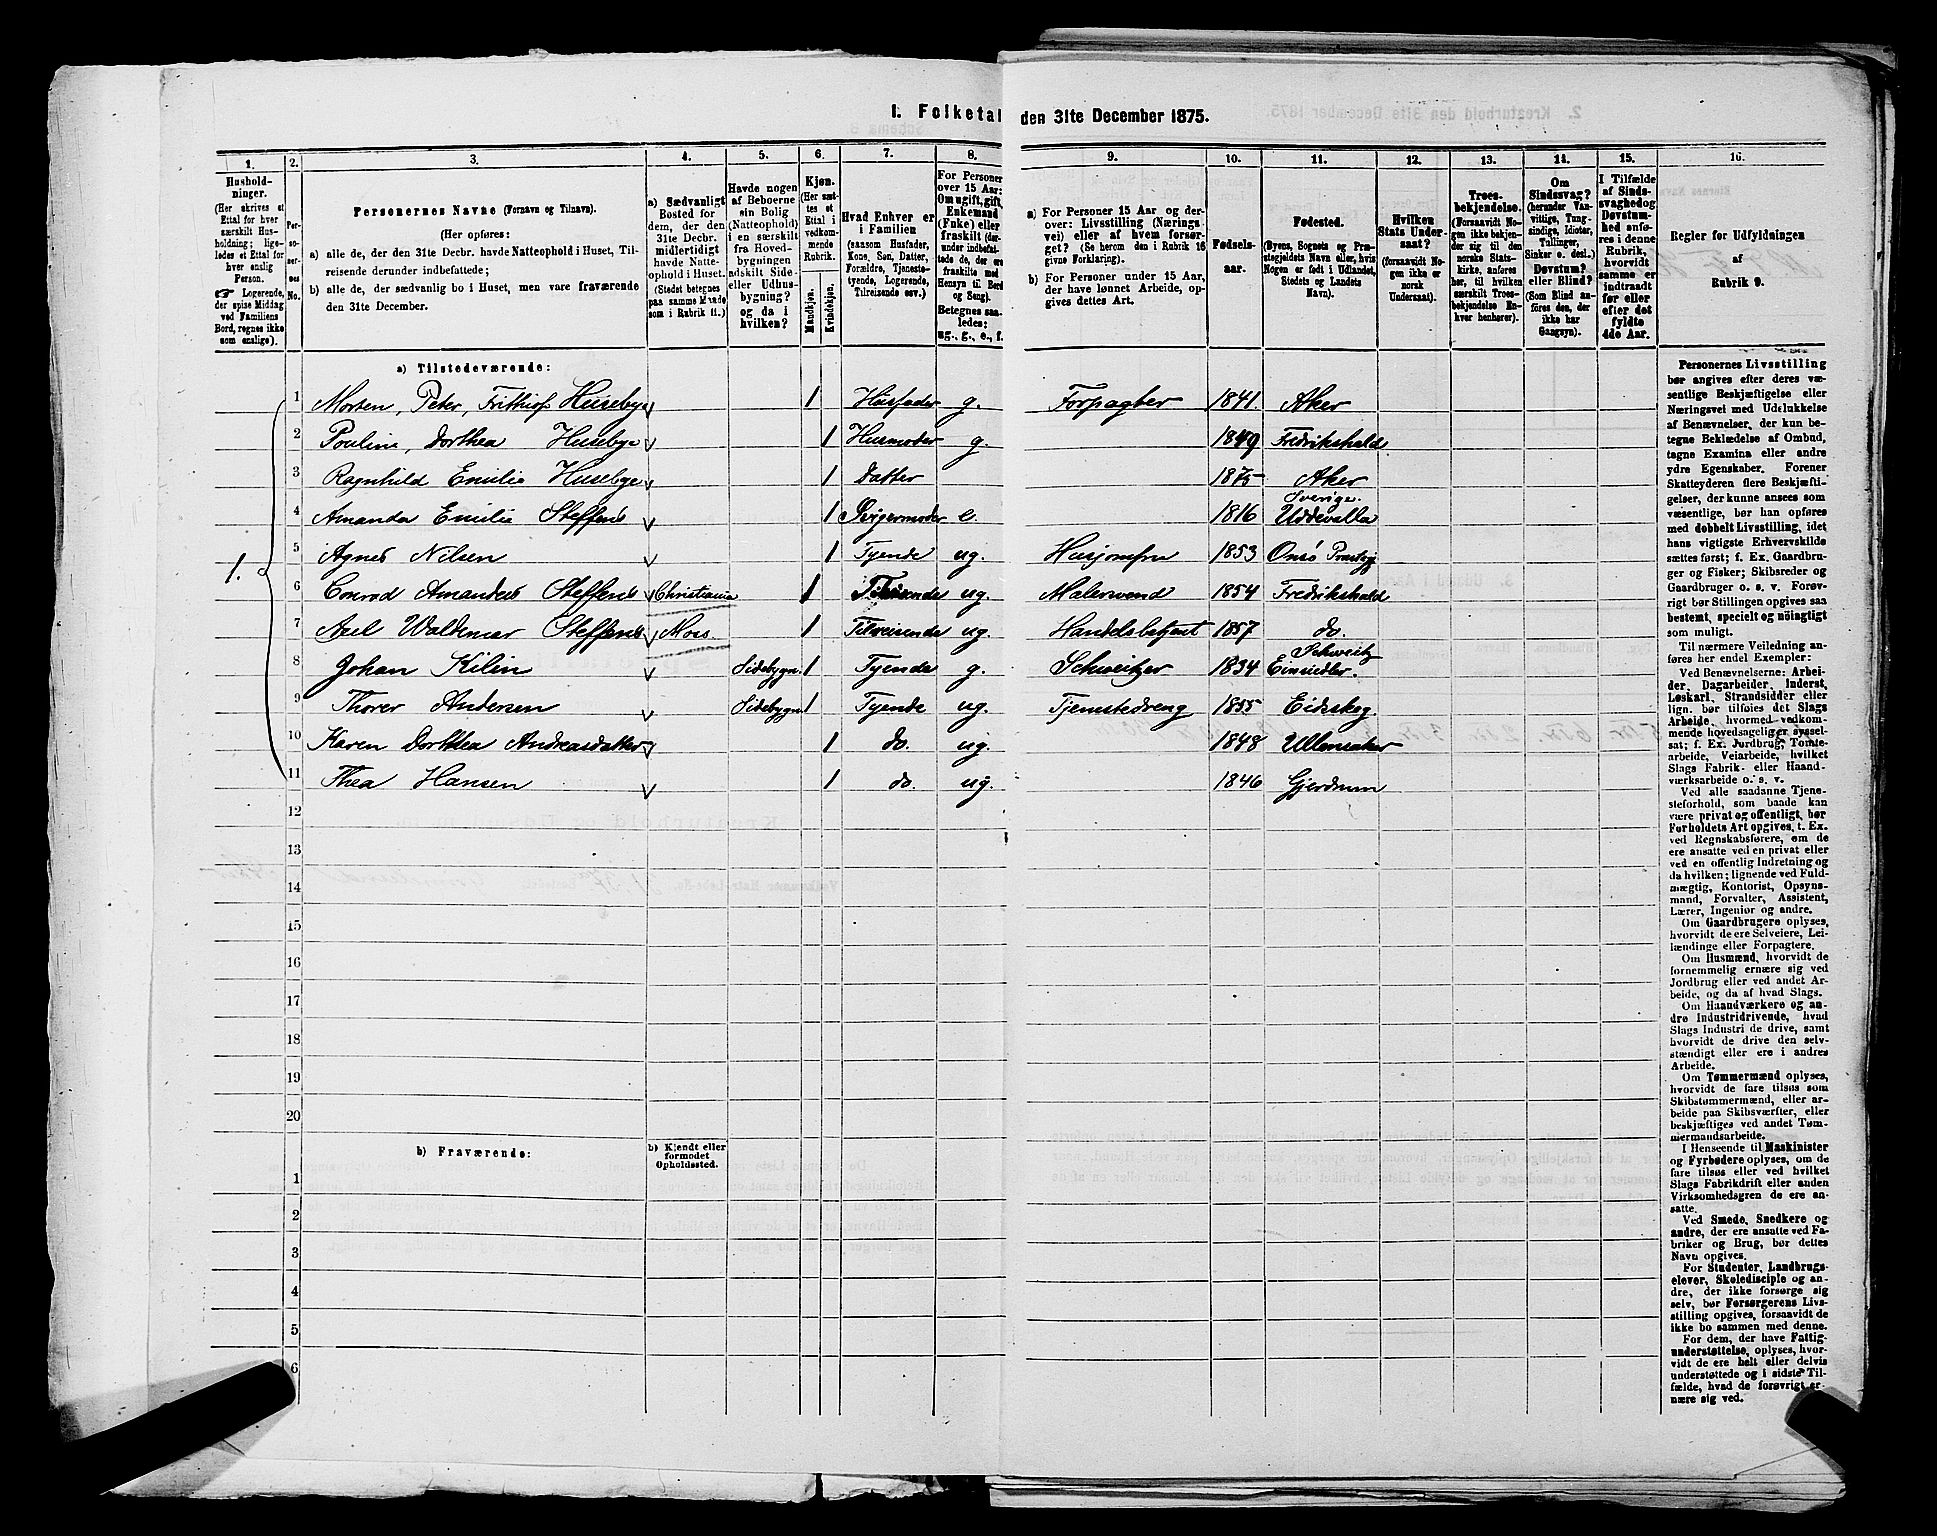 I. Folketal den 31te December 1875.
1. 2. 3. 4. 5. 6. 7. 8. 9. 10. 11. 12. 13. 14. 15. 16.
Husholdninger.
(Her skrives et
Ettal for hver
særskilt Husholdning;
ligeledes et Ettal for
hver enslig
Person.
☞ Logerende,
der spise Middag
ved Familiens
Bord, regnes ikke
som enslige).
Personernes No.
Personernes Navne (Fornavn og Tilnavn).
(Her opføres:
a) alle de, der den 31te Decbr. havde Natteophold i Huset, Tilreisende derunder indbefattede;
b) alle de, der sædvanlig bo i Huset, men vare fraværende
den 31te December.
a) Sædvanligt
Bosted for
dem, der den
31te Decbr.
midlertidigt
havde Natteophold i Huset.
(Stedet betegnes
paa samme Maade
som i Rubrik 11.)
Havde nogen
af Beboerne
sin Bolig
(Natteophold)
i en særskilt
fra Hovedbygningen
adskilt Side-
eller Udhusbygning?
og da i
hvilken?
Kjøn.
(Her sættes et
Ettal i
vedkommende
Rubrik.
Mandkjøn.
Kvindekjøn.
Hvad Enhver er
i Familien
(saasom Husfader,
Kone, Søn, Datter,
Forældre, Tjenestetyende, Logerende,
Tilreisende osv.)
For Personer
over 15 Aar:
Om ugift, gift,
Enkemand
(Enke) eller
fraskilt (derunder indbefattede de, der ere
fraskilte med
Hensyn til Bord
og Seng).
Betegnes saaledes:
ug., g., e., f.
a) For Personer 15 Aar og derover: Livsstilling (Næringsvei) eller af hvem forsørget? (Se herom den i Rubrik 16
givne Forklaring).
b) For Personer under 15 Aar,
der have lønnet Arbeide, opgives dettes Art.
Fødselsaar.
Fødested.
(Byens, Sognets og Præstegjeldets Navn eller, hvis
Nogen er født i Udlandet,
Stedets og Landets
Navn).
Hvilken
Stats Undersaat?
(forsaavidt Nogen ikke er
norsk
Undersaat).
Troesbekjendelse.
(Forsaavidt Nogen ikke bekjender sig til den
norske Statskirke, anføres
her, til hvilken
særskilt Troesbekjendelse Enhver henhører).
Om
Sindssvag?
(herunder Vanvittige, Tungsindige, Idioter,
Tullinger,
Sinker o. desl.)
Døvstum?
eller Blind?
(Som Blind anføres den, der
ikke har
Gangsyn).
I Tilfælde
af Sindssvaghed og
Døvstumhed anføres i denne
Rubrik,
hvorvidt
samme er
indtraadt
før eller
efter det
fyldte
4de Aar.
Regler for Udfyldningen
af
Rubrik 9.
a) Tilstedeværende:
1.
1 Morten, Peter, Frithiof Huseby 1 Husfader g. Forpagter 1841. Aker
2 Pouline, Dorthea Husebye 1 Husmoder g. 1849 Fredrikshald
3 Ragnhild Emilie Husebye 1 Datter 1875 Aker
4 Amanda Emilie Steffens 1 Svigermoder e. 1816 Sverige. Uddevalla
5 Agnes Nilsen 1 Tyende ug. Husjomfru 1853 Onsø Præstgj
6 Conrad Amandus Steffens Christiania 1 Tilreisende ug. Malersvend 1854 Fredrikshald
7 Axel Waldemar Steffens Moss. 1 Tilreisende ug. Handelsbetjent 1857 do.
8 Johan Kilin Sidebygn. 1 Tyende g. Schweitzer 1834 Schweitz Einsiedler.
9 Thorer Andersen Sidebygn 1 Tyende ug. Tjenestedreng 1855 Eidskog
10 Karen Dorthea Andreasdatter 1 do. ug. 1848 Ullensaker
11 Thea Hansen 1 do. ug. 1846 Gjerdrum
12
13
14
15
16
17
18
19
20
b) Fraværende:
b) Kjendt eller
formodet
Opholdssted.
1
2
3
4
5
6
Personernes Livsstilling
bør angives efter deres væsentlige Beskjæftigelse eller
Næringsvei med Udelukkelse
af Benævnelser, der kun betegne Beklædelse af Ombud,
tagne Examina eller andre
ydre Egenskaber. Forener
Skatteyderen flere Beskjæftigelser, der kunne ansees som
væsentlige, bør han opføres
med dobbelt Livsstilling, idet
hans vigtigste Erhvervskilde
sættes først; f. Ex. Gaardbruger og Fisker; Skibsreder og
Gaardbruger o. s. v. Forøvrigt bør Stillingen opgives saa
bestemt, specielt og nöiagtigt
som muligt.
Til nærmere Veiledning anføres her endel Exempler:
Ved Benævnelserne: Arbeider, Dagarbeider, Inderst,
Løskarl, Strandsidder eller
lign. bør tilføies det Slags
Arbeide, hvormed vedkommende hovedsagelig er sysselsat; f. Ex. Jordbrug, Tomtearbeide, Veiarbeide, hvilket
Slags Fabrik- eller Haandværksarbeide o. s. v.
Ved alle saadanne Tjenesteforhold, som baade kan
være privat og offentligt, bør
Forholdets Art opgives, t. Ex.
ved Regnskabsførere, om de
ere ansatte ved en privat eller
ved en offentlig Indretning og
da hvilken; lignende ved Fuldmægtig, Kontorist, Opsynsmand, Forvalter, Assistent,
Lærer, Ingeniør og andre.
Om Gaardbrugere oplyses,
hvorvidt de ere Selveiere, Leilændinge eller Forpagtere.
Om Husmænd, hvorvidt de
fornemmelig ernære sig ved
Jordbrug eller ved andet Arbeide, og da af hvad Slags.
Om Haandværkere og andre Industridrivende, hvad
Slags Industri de drive, samt
hvorvidt de drive den selvstændigt eller ere i andres
Arbeide.
Om Tømmermænd oplyses,
hvorvidt de fare tilsøs som
Skibstømmermænd, eller arbeide paa Skibsværfter, eller
beskjæftiges ved andet Tømmermandsarbeide.
I Henseende til Maskinister
og Fyrbødere oplyses, om de
fare tilsøs eller ved hvilket
Slags Fabrikdrift eller anden
Virksomhedsgren de ere ansatte.
Ved Smede, Snedkere og
andre, der ere ansatte ved Fabriker og Brug, bør dettes
Navn opgives.
For Studenter, Landbrugselever, Skoledisciple og andre, der ikke forsørge sig
selv, bør Forsørgerens Livsstilling opgives, forsaavidt de
ikke bo sammen med denne.
For dem, der have Fattigunderstøttelse, oplyses, hvorvidt de ere helt eller delvis
understøttede og i sidste Tilfælde, hvad de forøvrigt ernære sig ved.